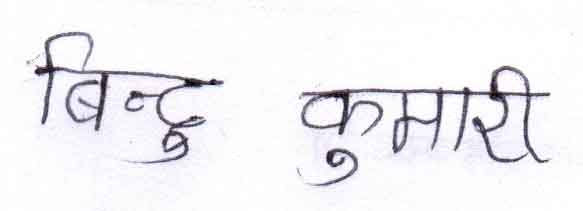 बिन्दु कुमारी